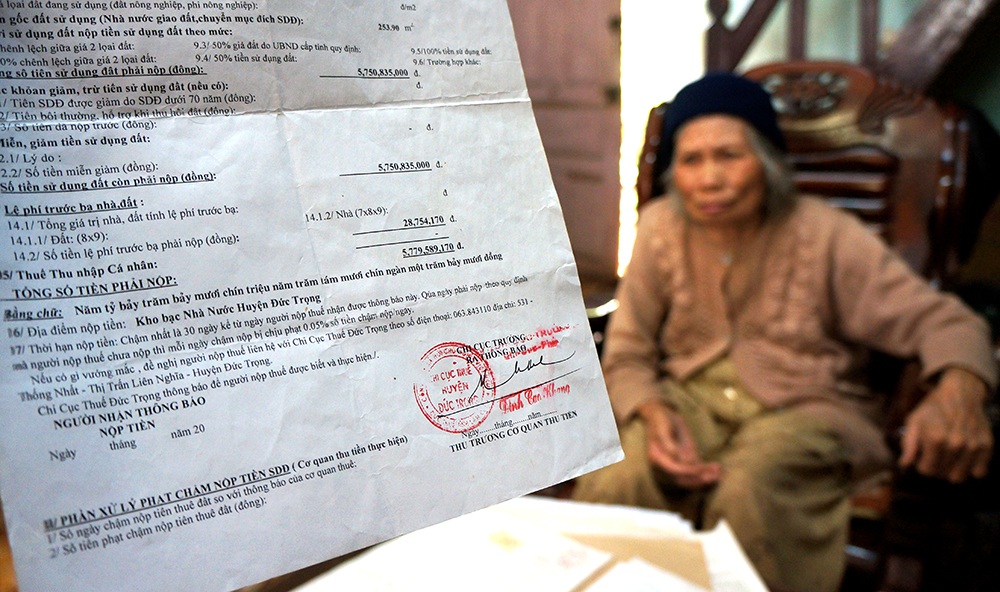 loại đất đang sử dụng (đất nông nghiệp, phi nông nghiệp): đ/m2
gốc sử dụng (Nhà nước giao đất,chuyển mục đích SDĐ):
sử dụng đất nộp tiền sử dụng đất theo mức: 253.90 m2
chênh lệch giữa giá 2 loại đất: 9.3/ 50% giá đất do UBND cấp tỉnh quy định: 9.5/100% tiền sử dụng đất:
0% chênh lệch giữa giá 2 loại đất: 9.4/ 50% tiền sử dụng đất: 9.6/ Trường hợp khác:
số tiền sử dụng đất phải nộp (đồng): 5,750,835,000 đ.
khoản giảm, trừ tiền sử dụng đất (nếu có): đ.
1/ Tiền SDĐ được giảm do SDĐ dưới 70 năm (đồng):
2/ Tiền bồi thường, hỗ trợ khi thu hồi đất (đồng):
3/ Số tiền đã nộp trước (đồng): - đ.
Miễn, giảm tiền sử dụng đất:
2.1/ Lý do :
2.2/ Số tiền miễn giảm (đồng): 5,750,835,000 đ.
Số tiền sử dụng đất còn phải nộp (đồng):
Lệ phí trước bạ nhà,đất : đ
14.1/ Tổng giá trị nhà, đất tính lệ phí trước bạ: 14.1.2/ Nhà (7x8x9):
14.1.1/ Đất: (8x9): 28,754,170 đ.
14.2/ Số tiền lệ phí trước bạ phải nộp (đồng): -
15/ Thuế Thu nhập Cá nhân: 5,779,589,170 đ.
TỔNG SỐ TIỀN PHẢI NỘP:
Bằng chữ: Năm tỷ bảy trăm bảy mươi chín triệu năm trăm tám mươi chín ngàn một trăm bảy mươi đồng
16/ Địa điểm nộp tiền: Kho bạc Nhà Nước Huyện Đức Trọng
17/ Thời hạn nộp tiền: Chậm nhất là 30 ngày kể từ ngày người nộp thuế nhận được thông báo này. Qúa ngày phải nộp theo quy định
mà người nộp thuế chưa nộp thì mỗi ngày chậm nộp bị chịu phạt 0.05% số tiền chậm nộp/ngày.
Nếu có gì vướng mắc , đề nghị người nộp thuế liên hệ với Chi Cục Thuế Đức Trọng theo số điện thoại: 063.843110 địa chỉ: 531 -
Thống Nhất - Thị Trấn Liên Nghĩa - Huyện Đức Trọng.
Chi Cục Thuế Đức Trọng thông báo để người nộp thuế được biết và thực hiện./.
NGƯỜI NHẬN THÔNG BÁO
NỘP TIỀN
Ngày tháng năm 20
CHI CỤC TRƯỞNG
RA THÔNG BÁO
CHI CỤC THUẾ
HUYỆN
ĐỨC TRỌNG
Đinh Cao Khang
Ngày........tháng......năm......
THỦ TRƯỞNG CƠ QUAN THU TIỀN
II/ PHẦN XỬ LÝ PHẠT CHẬM NỘP TIỀN SDĐ (Cơ quan thu tiền thực hiện)
1/ Số ngày chậm nộp tiền thuê đất so với thông báo của cơ quan thuế:
2/ Số tiền phạt chậm nộp tiền thuê đất (đồng):